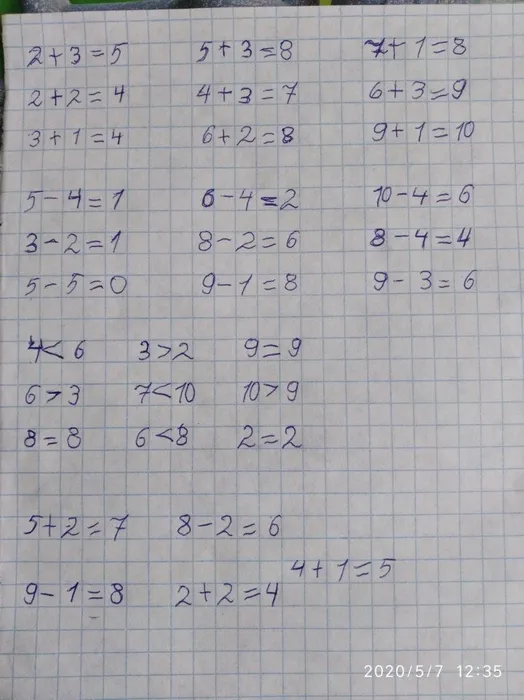 2+3=5 5+3=8 7+1=8
2+2=4 4+3=7 6+3=9
3+1=4 6+2=8 9+1=10
5-4=1 6-4=2 10-4=6
3-2=1 8-2=6 8-4=4
5-5=0 9-1=8 9-3=6
4<6 3>2 9=9
6>3 7<10 10>9
8=8 6<8 2=2
5+2=7 8-2=6
4+1=5
9-1=8 2+2=4
2020/5/7 12:35